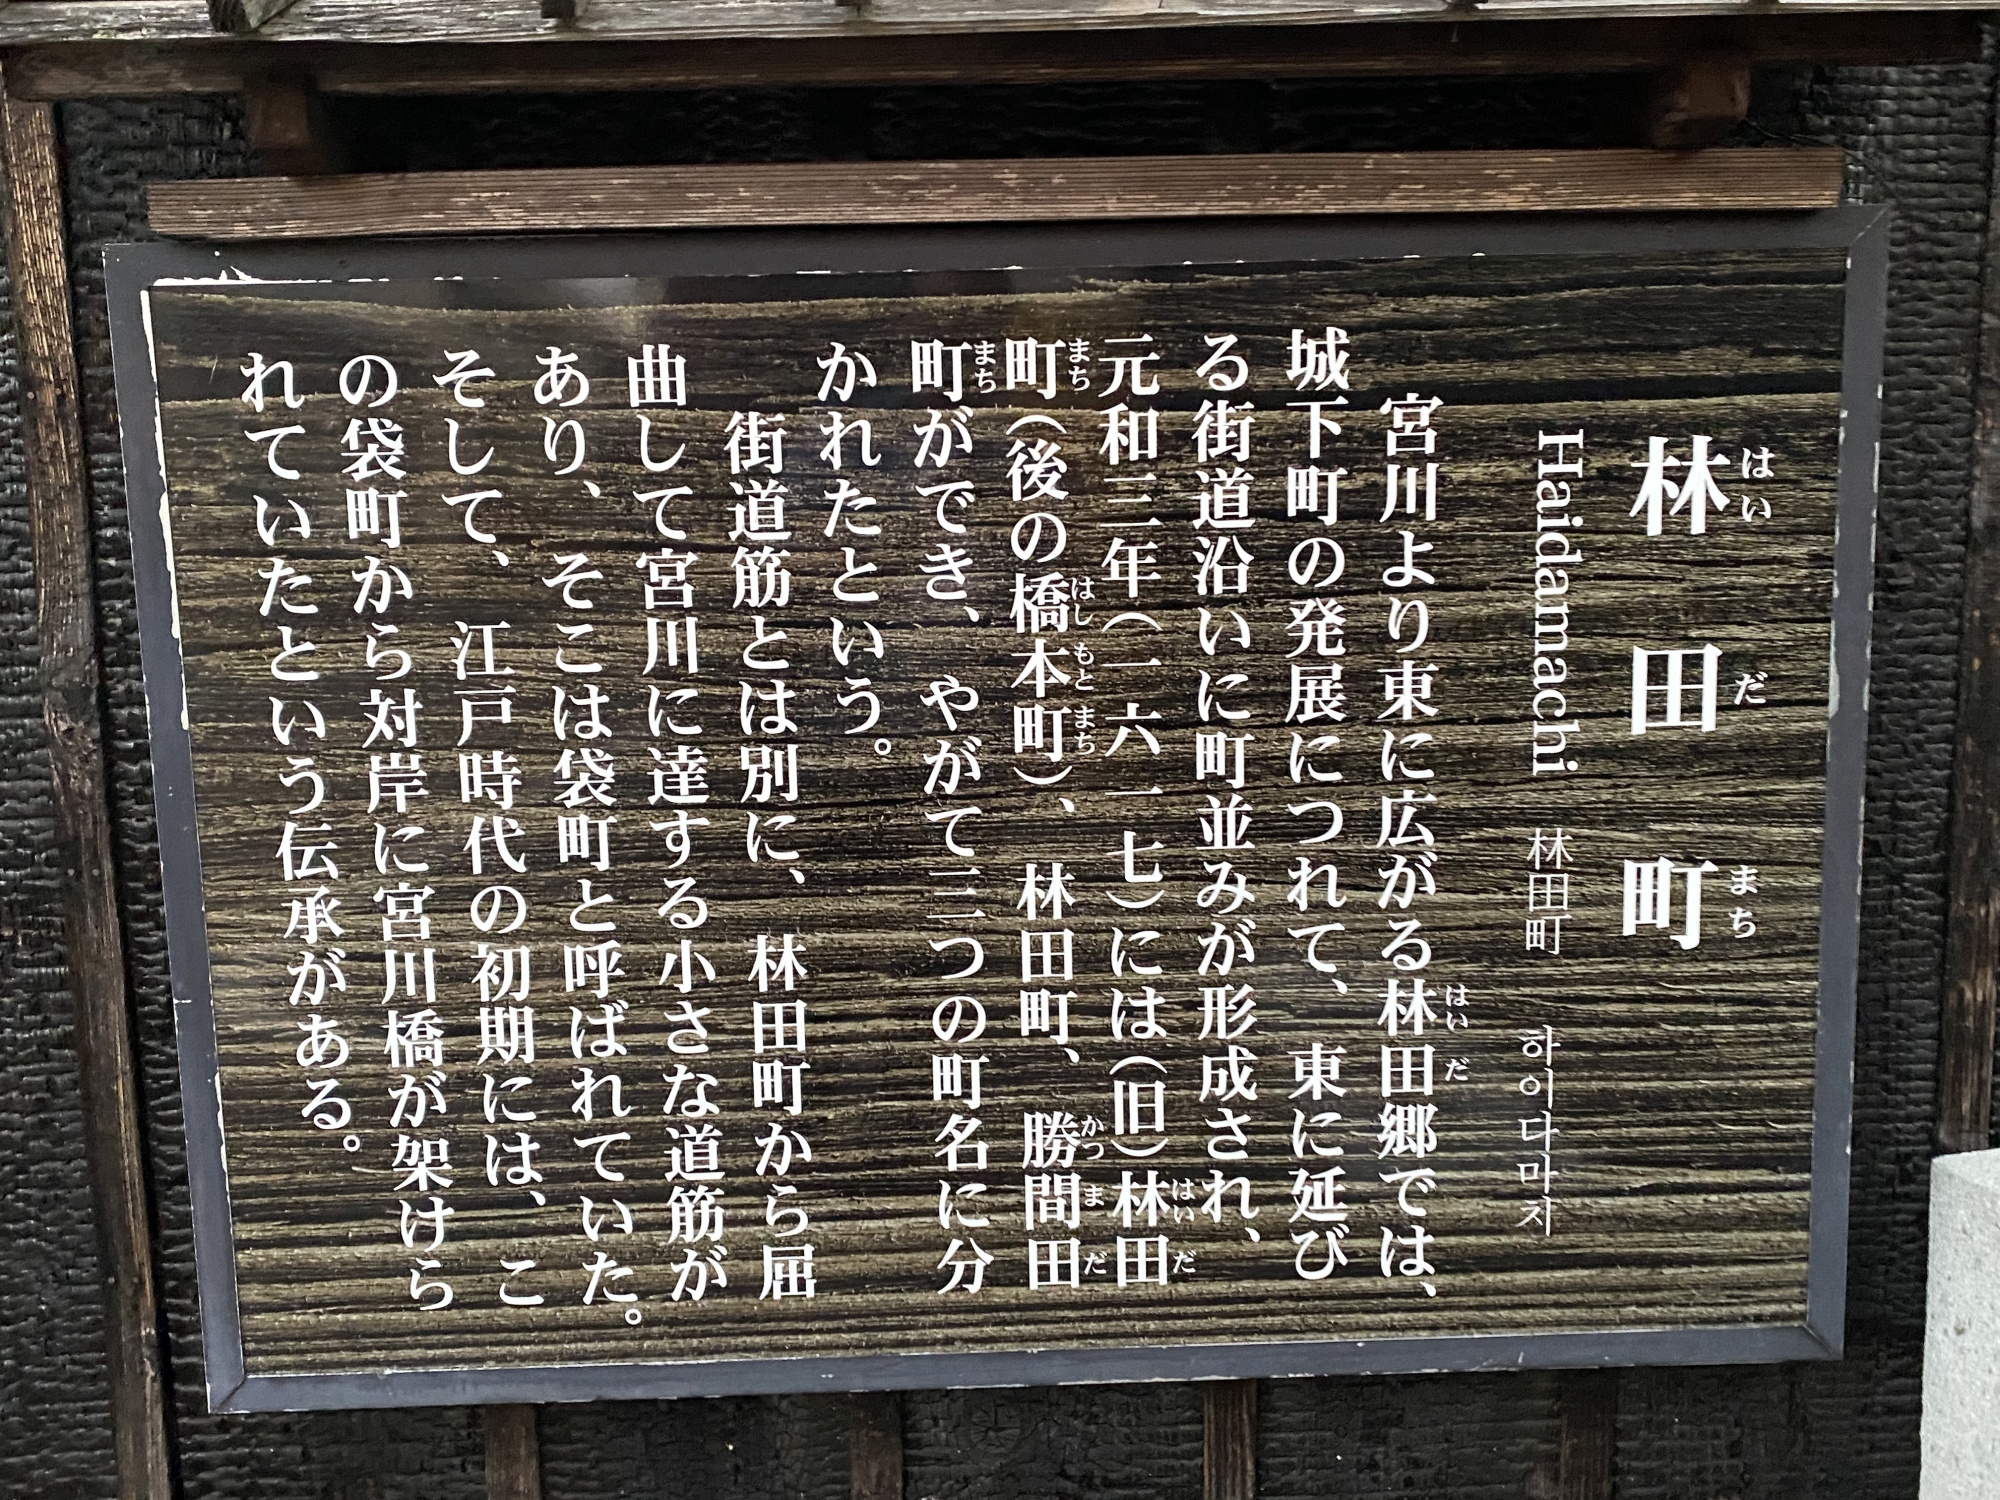 林田町
はいだまち
Haidamachi 林田町 하이다마지
宮川より東に広がる林田郷では、
はいだ
城下町の発展につれて、東に延び
る街道沿いに町並みが形成され、
元和三年(一六一七)には(旧)林田
はいだ
町(後の橋本町)、林田町、勝間田
まち はしもとまち かつまだ
町ができ、やがて三つの町名に分
まち
かれたという。
街道筋とは別に、林田町から屈
曲して宮川に達する小さな道筋が
あり、そこは袋町と呼ばれていた。
そして、江戸時代の初期には、こ
の袋町から対岸に宮川橋が架けら
れていたという伝承がある。